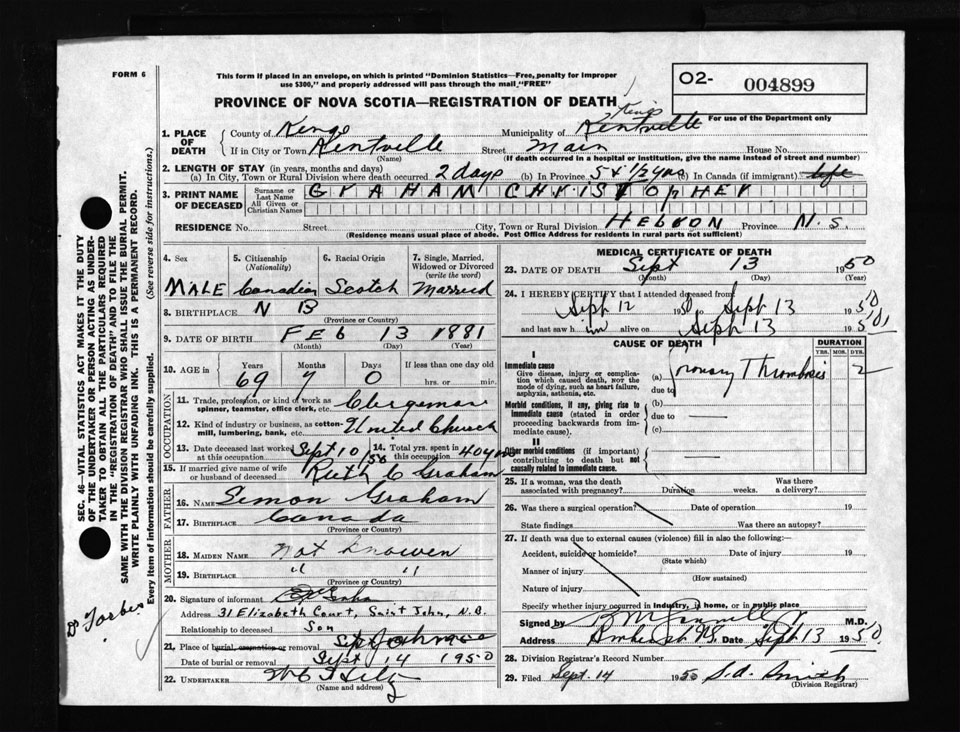 FORM 6
This form if placed in an envelope, on which is printed "Dominion Statistics—Free, penalty for improper
use $300," and properly addressed will pass through the mail "FREE"
O2- 004899
PROVINCE OF NOVA SCOTIA—REGISTRATION OF DEATH
For use of the Department only
1. PLACE OF DEATH
County of Kings Municipality of Kentville Kings
If in City or Town Kentville Street Main House No.
(Name) (If death occurred in a hospital or institution, give the name instead of street and number)
2. LENGTH OF STAY (in years, months and days)
(a) In City, Town or Rural Division where death occurred 2 days (b) In Province 5 & 1/2 yrs (c) In Canada (if immigrant) life
3. PRINT NAME OF DECEASED
Surname or Last Name
All Given or Christian Names
GRAHAM CHRISTOPHER
RESIDENCE No. Street City, Town or Rural Division HEBRON Province N.S.
(Residence means usual place of abode. Post Office Address for residents in rural parts not sufficient)
4. Sex
MALE
5. Citizenship (Nationality)
Canadian
6. Racial Origin
Scotch
7. Single, Married, Widowed or Divorced (write the word)
Married
8. BIRTHPLACE N B
(Province or Country)
9. DATE OF BIRTH FEB 13 1881
(Month) (Day) (Year)
10. AGE in Years Months Days If less than one day old
69 7 0 hrs. or min.
OCCUPATION
11. Trade, profession, or kind of work as
spinner, teamster, office clerk, etc. Clergeman
12. Kind of industry or business, as cotton-
mill, lumbering, bank, etc. United Church
13. Date deceased last worked at this occupation Sept 10/50
14. Total yrs. spent in this occupation 40 yrs
15. If married give name of wife
or husband of deceased Ruth C Graham
FATHER
16. Name Simon Graham
17. Birthplace Canada
(Province or Country)
MOTHER
18. MAIDEN NAME Not Knowen
19. BIRTHPLACE " "
(Province or Country)
20. Signature of informant
Address 31 Elizabeth Court, Saint John, N.B.
Relationship to deceased Son
21. Place of burial, cremation or removal
Date of burial or removal Sept 14 1950
22. UNDERTAKER
(Name and address)
MEDICAL CERTIFICATE OF DEATH
23. DATE OF DEATH Sept 13 1950
(Month) (Day) (Year)
24. I HEREBY CERTIFY that I attended deceased from:
Sept 12 1950 Sept 13 1950
and last saw him alive on Sept 13 1950
CAUSE OF DEATH
DURATION
YRS. MOS. DYS.
I
Immediate cause
Give disease, injury or complica-
tion which caused death, NOT the
mode of dying, such as heart failure,
asphyxia, asthenia, etc.
(a) Thrombosis 2
due to
Morbid conditions, if any, giving rise to
immediate cause (stated in order
proceeding backwards from im-
mediate cause).
(b)
due to
(c)
II
Other morbid conditions (if important)
contributing to death but not
causally related to immediate cause.
25. If a woman, was the death Was there
associated with pregnancy? Duration weeks. a delivery?
26. Was there a surgical operation? Date of operation 19
State findings Was there an autopsy?
27. If death was due to external causes (violence) fill in also the following:—
Accident, suicide or homicide? Date of injury 19
(State which)
Manner of injury
(How sustained)
Nature of injury
Specify whether injury occurred in industry, in home, or in public place
Signed by M.D.
Address Date Sept 13 1950
28. Division Registrar's Record Number
29. Filed Sept. 14 1950 S.A. Smith
(Division Registrar)
SEC. 46—VITAL STATISTICS ACT MAKES IT THE DUTY
OF THE UNDERTAKER OR PERSON ACTING AS UNDER-
TAKER TO OBTAIN ALL THE PARTICULARS REQUIRED
IN THE "REGISTRATION OF DEATH" AND TO FILE THE
SAME WITH THE DIVISION REGISTRAR WHO SHALL ISSUE THE BURIAL PERMIT.
WRITE PLAINLY WITH UNFADING INK. THIS IS A PERMANENT RECORD.
Every item of information should be carefully supplied. (See reverse side for instructions.)
Dr Forbes